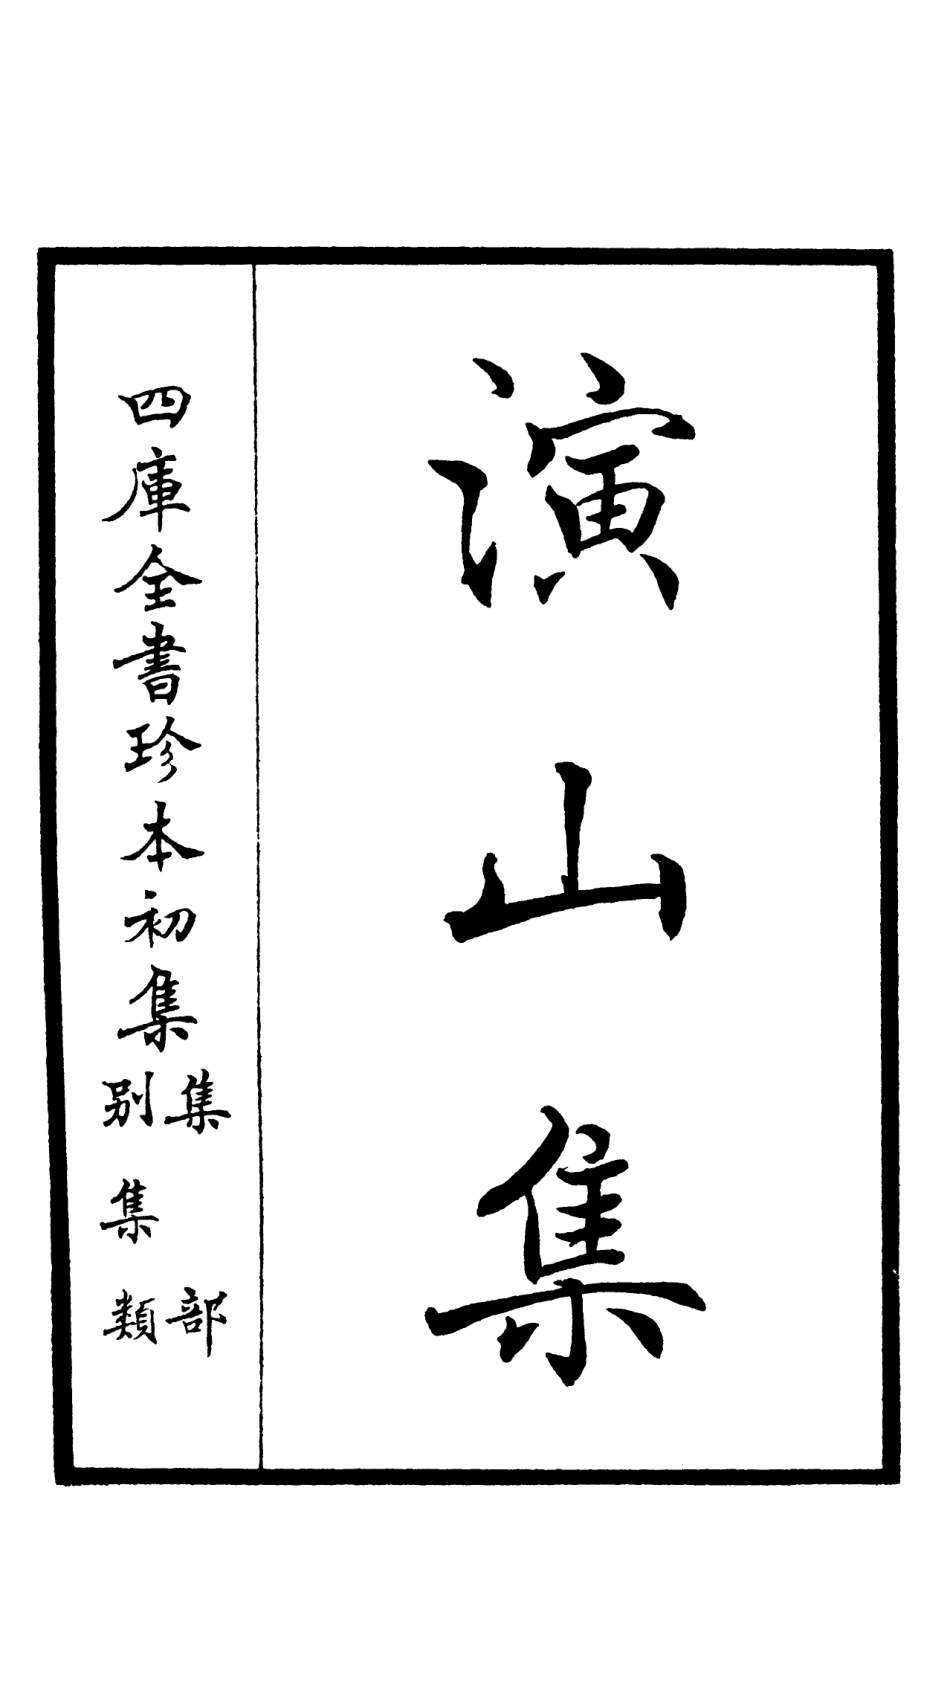 演山集
四庫全書珍本初集
集部
別集類